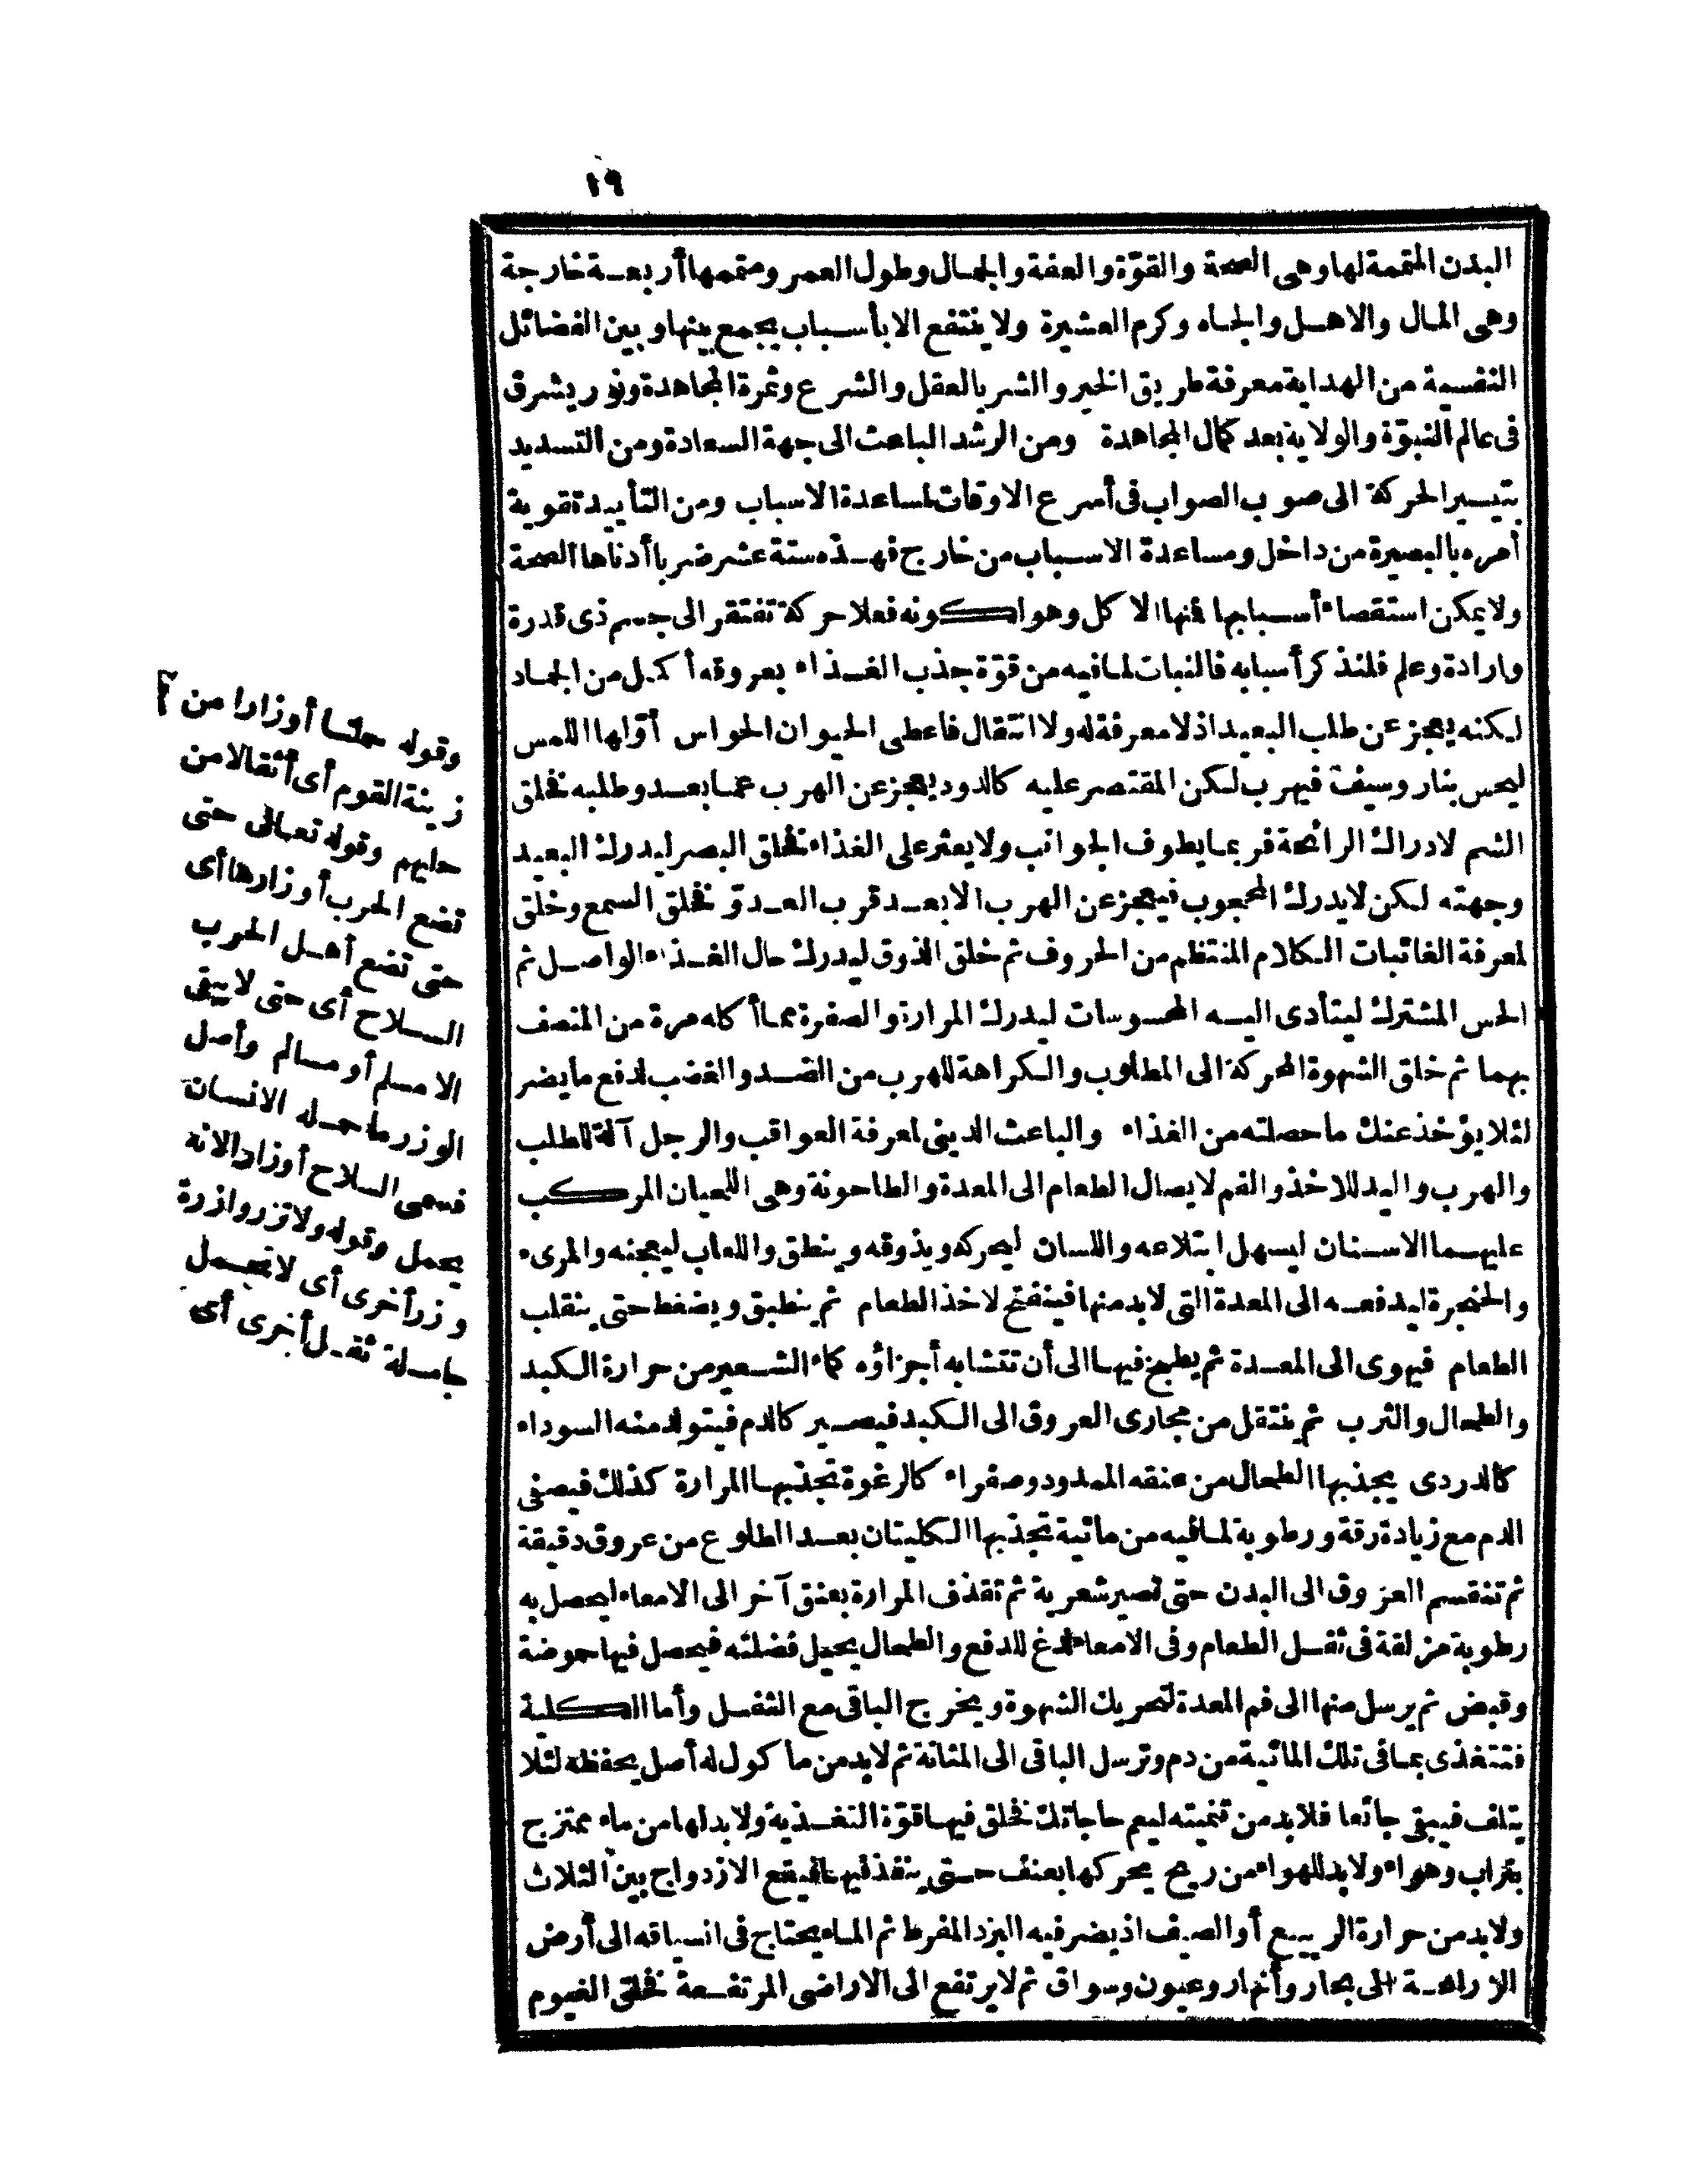 ١٩
البدن المتممة لها وهى الصحة والقوّة والعفة والجمال وطول العمر ومتممها أربعة خارجة
وهى المال والاهل والجاه وكرم العشيرة ولا ينتفع الا بأسباب يجمع بينها وبين الفضائل
النفسية من الهداية معرفة طريق الخير والشر بالعقل والشرع وثمرة المجاهدة ونور يشرق
فى عالم النبوّة والولاية بعد كمال المجاهدة ومن الرشد الباعث الى جهة السعادة ومن التسديد
بتيسير الحركة الى صوب الصواب فى أسرع الاوقات لمساعدة الاسباب ومن التأييد تقوية
أمره بالبصيرة من داخل ومساعدة الاسباب من خارج فهذه ستة عشر ضربا أدناها الصحة
ولا يمكن استقصاء أسبابها فمنها الاكل وهو لكونه فعلا حركة تفتقر الى جسم ذى قدرة
وارادة وعلم فلنذكر أسبابه فالنبات لما فيه من قوّة جذب الغذاء بعروقه أكمل من الجماد
لكنه يعجز عن طلب البعيد اذ لا معرفة له ولا انتقال فاعطى الحيوان الحواس أوّلها اللمس
ليحس بنار وسيف فيهرب لكن المقتصر عليه كالدود يعجز عن الهرب عما بعد وطلبه فخلق
الشم لادراك الرائحة فربما يطوف الجوانب ولا يعثر على الغذاء فخلق البصر ليدرك البعيد
وجهته لكن لا يدرك المحجوب فيعجز عن الهرب الا بعد قرب العدوّ فخلق السمع وخلق
لمعرفة الغائبات الكلام المنتظم من الحروف ثم خلق الذوق ليدرك حال الغذاء الواصل ثم
الحس المشترك ليتأدى اليه المحسوسات ليدرك المرارة والصفرة مما أكله مرة من المتصف
بهما ثم خلق الشهوة المحركة الى المطلوب والكراهة للهرب من الضد والغضب لدفع ما يضر
لئلا يؤخذ عنك ما حصلته من الغذاء والباعث الدينى لمعرفة العواقب والرجل آلة للطلب
والهرب واليد للاخذ والفم لايصال الطعام الى المعدة والطاحونة وهى اللحيان المركب
عليهما الاسنان ليسهل ابتلاعه واللسان ليحركه ويذوقه وينطق واللعاب ليعجنه والمرىء
والحنجرة ليدفعه الى المعدة التى لابد منها فينفتح لاخذ الطعام ثم ينطبق ويضغط حتى ينقلب
الطعام فيهوى الى المعدة ثم يطبخ فيها الى أن تتشابه أجزاؤه كماء الشعير من حرارة الكبد
والطحال والثرب ثم ينتقل من مجارى العروق الى الكبد فيصير كالدم فيتولد منه السوداء
كالدردى يجذبها الطحال من عنقه الممدود وصفراء كالرغوة تجذبها المرارة كذلك فيصفى
الدم مع زيادة رقة ورطوبة لما فيه من مائية تجذبها الكليتان بعد الطلوع من عروق دقيقة
ثم تنقسم العروق الى البدن حتى تصير شعرية ثم تقذف المرارة بعنق آخر الى الامعاء ليحصل به
رطوبة مزلقة فى ثفل الطعام وفى الامعاء لدغ للدفع والطحال يحيل فضلته فيحصل فيها حموضة
وقبض ثم يرسل منها الى فم المعدة لتحريك الشهوة ويخرج الباقى مع الثفل وأما الكلية
فتتغذى بما فى تلك المائية من دم وترسل الباقى الى المثانة ثم لابد من مأكول له أصل يحفظه لئلا
يتلف فيبقى جائعا فلابد من تنميته ليعم حاجاتك فخلق فيها قوّة التغذية ولابد لها من ماء ممتزج
بتراب وهواء ولابد للهواء من ريح يحركها بعنف حتى ينفذ فيها فيقع الازدواج بين الثلاث
ولابد من حرارة الربيع أو الصيف اذ يضر فيه البرد المفرط ثم الماء يحتاج فى انسياقه الى أرض
الزراعة الى بحار وأنهار وعيون وسواق ثم لا يرتفع الى الاراضى المرتفعة فخلق الغيوم
وقوله حملنا أوزارا من
زينة القوم أى أثقالا من
حليهم وقوله تعالى حتى
تضع الحرب أوزارها أى
حتى تضع أهل الحرب
السلاح أى حتى لا يبقى
الا مسلم أو مسالم وأصل
الوزر ما حمله الانسان
فسمى السلاح أوزارا لانه
يحمل وقوله ولا تزر وازرة
وزر أخرى أى لا تحمل
حاملة ثقل أخرى أى